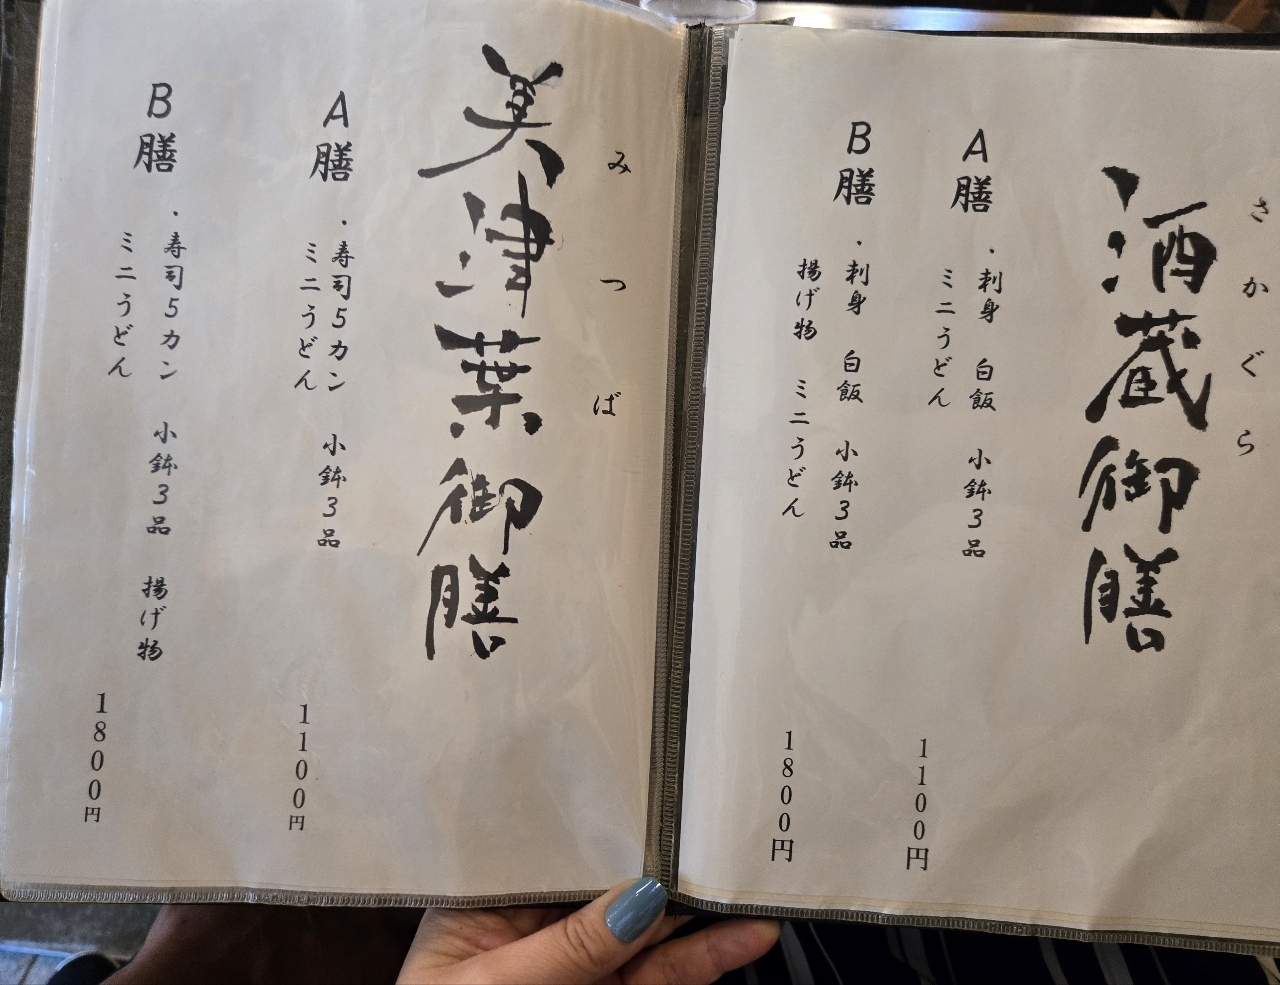 さかぐら
酒蔵御膳
A膳
・刺身 白飯 小鉢3品
ミニうどん
1100円
B膳
・刺身 白飯 小鉢3品
揚げ物 ミニうどん
1800円
みつば
美津葉御膳
A膳
・寿司5カン 小鉢3品
ミニうどん
1100円
B膳
・寿司5カン 小鉢3品 揚げ物
ミニうどん
1800円